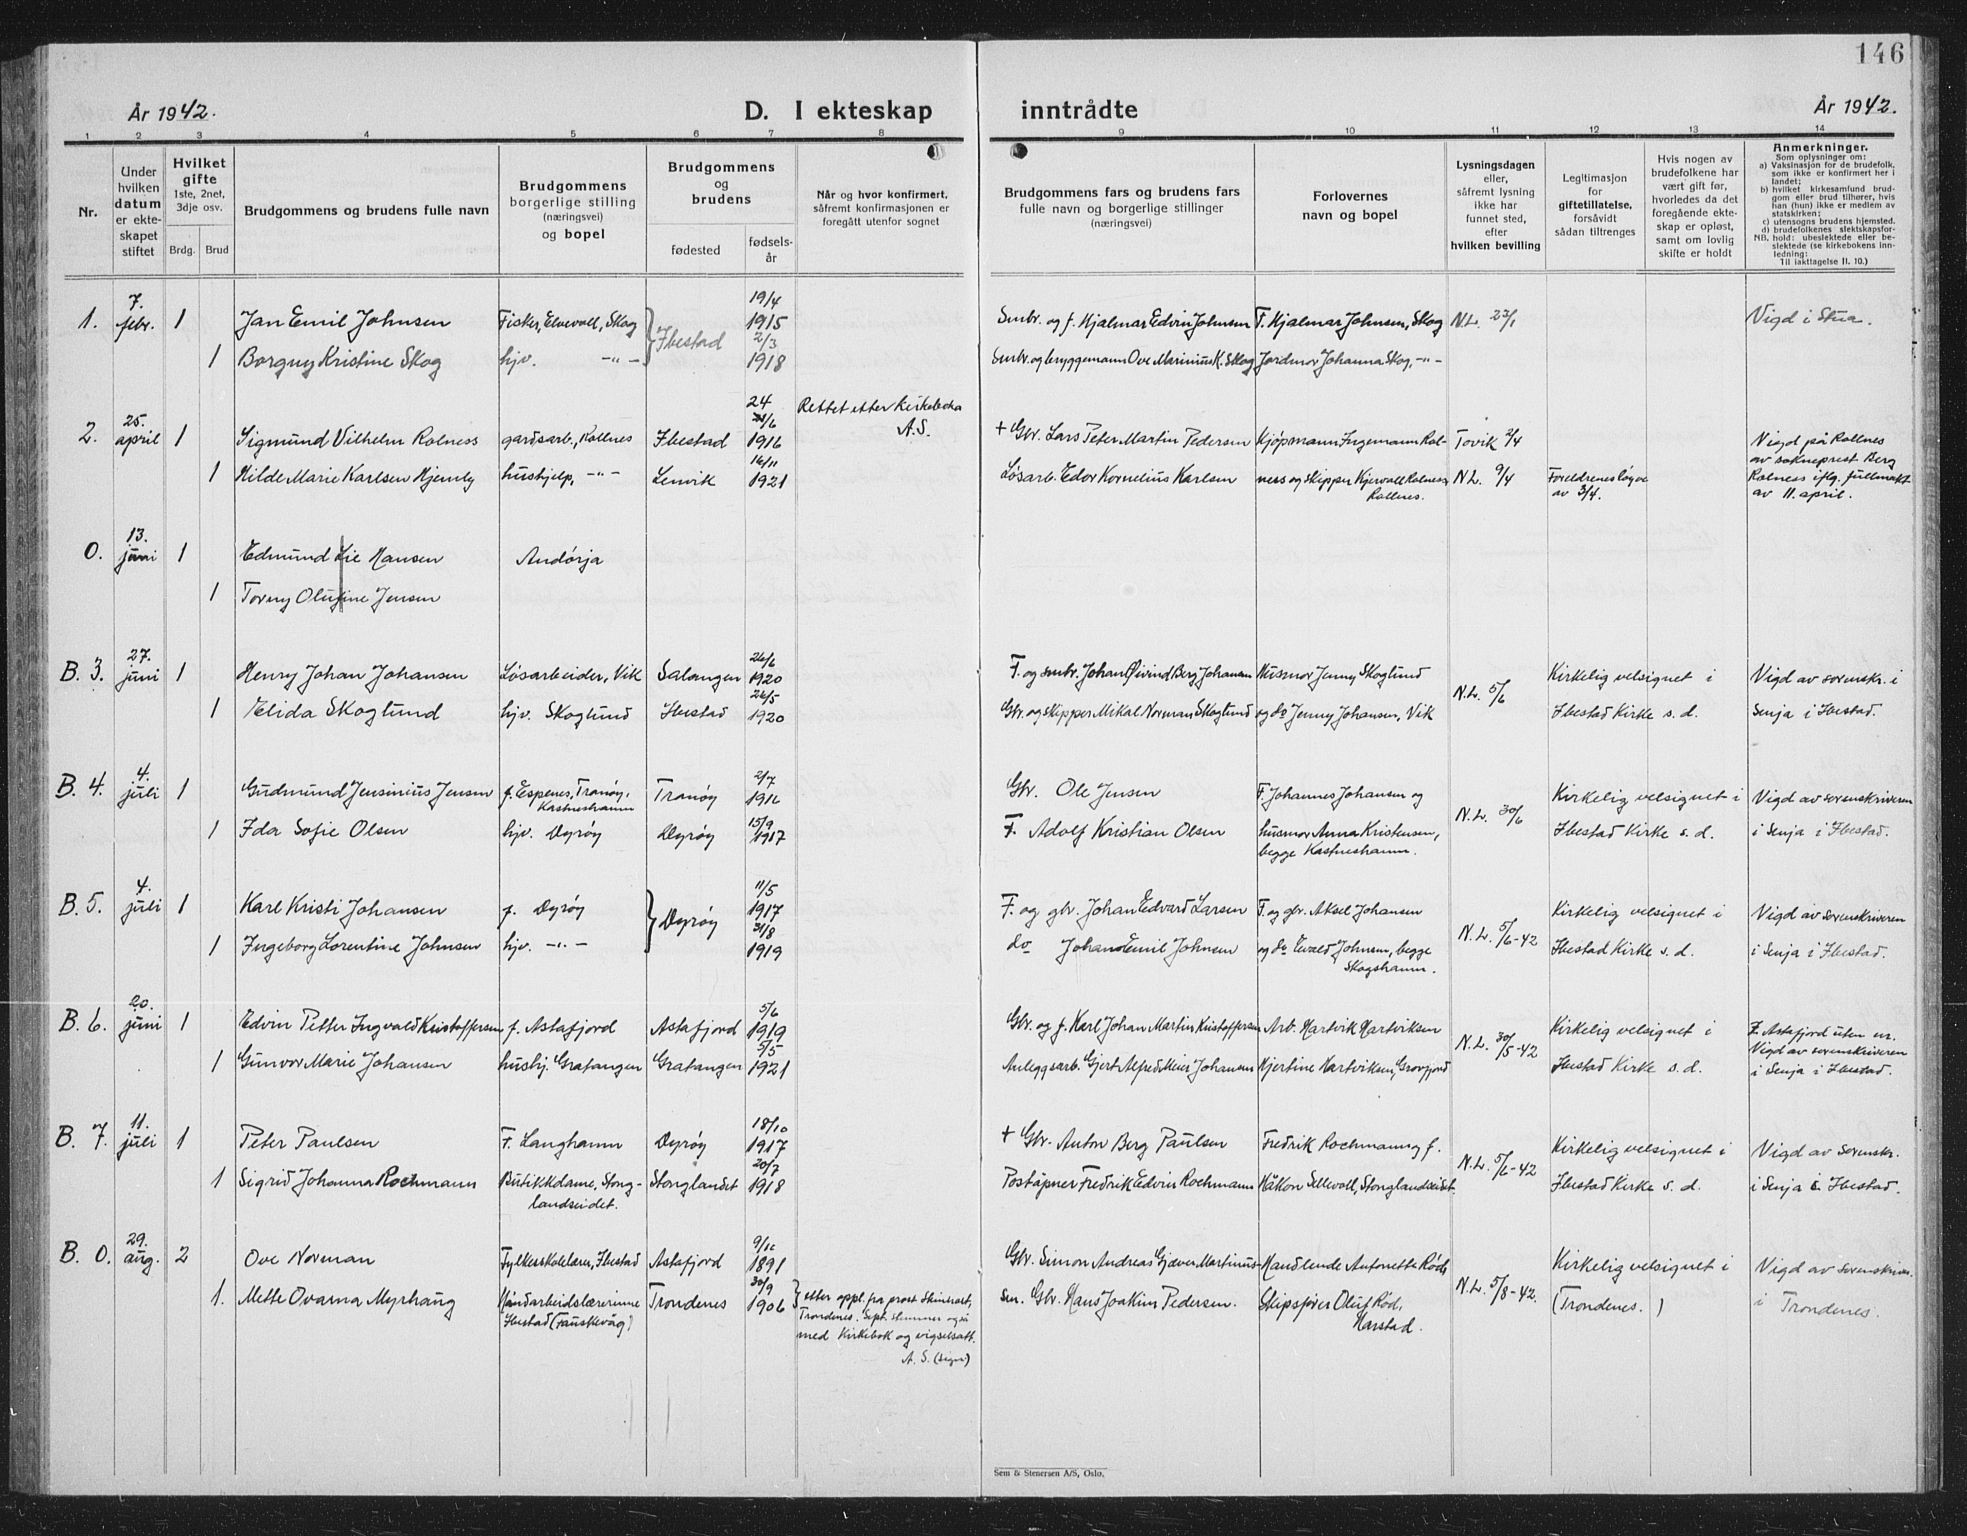 146
År 1942.
D. I ekteskap inntrådte
År 1942.
1 2 3 4 5 6 7 8 9 10 11 12 13 14
Nr.
Under hvilken datum er ekteskapet stiftet
Hvilket gifte 1ste, 2net, 3dje osv.
Brdg. Brud
Brudgommens og brudens fulle navn
Brudgommens borgerlige stilling (næringsvei) og bopel
Brudgommens og brudens
fødested
fødselsår
Når og hvor konfirmert, såfremt konfirmasjonen er foregått utenfor sognet
Brudgommens fars og brudens fars fulle navn og borgerlige stillinger (næringsvei)
Forlovernes navn og bopel
Lysningsdagen eller, såfremt lysning ikke har funnet sted, efter hvilken bevilling
Legitimasjon for giftetillatelse, forsåvidt sådan tiltrenges
Hvis nogen av brudefolkene har vært gift før, hvorledes da det foregående ekteskap er opløst, samt om lovlig skifte er holdt
Anmerkninger.
Som oplysninger om:
a) Vaksinasjon for de brudefolk, som ikke er konfirmert her i landet;
b) hvilket kirkesamfund brudgom eller brud tilhører, hvis han (hun) ikke er medlem av statskirken;
c) utensogns brudens hjemsted.
d) brudefolkenes slektskapsforhold: ubeslektede eller beslektede (se kirkebokens innledning:
NB. Til iakttagelse II. 10.)
1. 7. febr. 1 Jan Emil Johnsen Fisker, Elvevoll, Skog Ibestad 19/4 1915 Smbr. og f. Hjalmar Edvin Johnsen F. Hjalmar Johnsen, Skog N.L. 23/1 Vigd i Stua.
1 Borgny Kristine Skog hjv. -"- 2/3 1918 Smbr. og bryggemann Ove Marinius K. Skog Jordmor Johanna Skog, -"-
24 Rettet etter kirkeboka A.S.
2. 25. april 1 Sigmund Vilhelm Rolness gardsarb., Rollnes Ibestad /6 1916 + Gbr. Lars Peter Martin Pedersen Kjøpmann Ingemann Rol- Tovik 2/4 Vigd på Rollnes
1 Hilde Marie Karlsen Hjemly hushjelp, -"- Lenvik 16/11 1921 Løsarb. Edor Kornelius Karlsen ness og skipper Kjervall Rolness, Rollnes. N.L. 9/4 Foreldrenes løyve av 3/4. av sokneprest Berg Rolness iflg. fullmakt av 11. april.
0. 13. juni 1 Edmund Lie Hansen Andørja
1 Torny Olufine Jensen
B. 3. 27. juni 1 Henry Johan Johansen Løsarbeider, Vik Salangen 26/6 1920 F. og smbr. Johan Øivind Berg Johansen Husmor Jenny Skoglund N.L. 5/6 Kirkelig velsignet i Vigd av sorenskr. i
1 Elida Skoglund hjv. Skoglund Ibestad 26/5 1920 Gbr. og skipper Mikal Norman Skoglund og do Jenny Johansen, Vik Ibestad Kirke s. d. Senja i Ibestad.
B. 4. 4. juli 1 Gudmund Jensinius Jensen f. Espenes, Tranøy, Kastneshamn Tranøy 2/7 1916 Gbr. Ole Jensen F. Johannes Johansen og N.L. 30/6 Kirkelig velsignet i Vigd av sorenskriveren
1 Ida Sofie Olsen hjv. Dyrøy Dyrøy 15/9 1917 F. Adolf Kristian Olsen husmor Anna Kristensen, begge Kastneshamn. Ibestad Kirke s. d. i Senja i Ibestad.
B. 5. 4. juli 1 Karl Kristi Johansen f. Dyrøy Dyrøy 11/5 1917 F. og gbr. Johan Edvard Larsen F. og gbr. Aksel Johansen N.L. 5/6-42 Kirkelig velsignet i Vigd av sorenskriveren
1 Ingeborg Lorentine Johnsen hjv. -"- 31/8 1919 do Johan Emil Johnsen og do Evald Johnsen, begge Skogshamn. Ibestad Kirke s. d. i Senja i Ibestad.
B. 6. 20. juni 1 Edvin Petter Ingvald Kristoffersen f. Astafjord Astafjord 5/6 1919 Gbr. og f. Karl Johan Martin Kristoffersen Arb. Hartvik Hartviksen N.L. 30/5-42 Kirkelig velsignet i F. Astafjord uten nr.
1 Gunvor Marie Johansen hushj. Gratangen Gratangen 5/5 1921 Anleggsarb. Gjert Alfred Meier Johansen Hjertine Hartviksen, Grovfjord Ibestad Kirke s. d. Vigd av sorenskriveren i Senja i Ibestad.
B. 7. 11. juli 1 Peter Paulsen F. Langhamn Dyrøy 18/10 1917 + Gbr. Anton Berg Paulsen Fredrik Rochmann f. N.L. 5/6-42 Kirkelig velsignet i Vigd av sorenskr.
1 Sigrid Johanna Rochmann Butikkdame, Stonglandseidet. Stonglandet 20/7 1918 Poståpner Fredrik Edvin Rochmann Håkon Sellevoll, Stonglandseidet Ibestad Kirke s. d. i Senja i Ibestad.
B. 0. 29. aug. 2 Ove Norman Fylkesskolelærer, Ibestad Astafjord 9/11 1891 Gbr. Simon Andreas Gjæver Martinus- Handlende Antonette Rød, N.L. 5/8-42. Kirkelig velsignet i Vigd av sorenskriver.
1. Mette Ovarna Myrhaug Håndarbeidslærerinne Ibestad (Fauskevåg) Trondenes 30/9 1906 } etter oppl. fra prost Trondenes. Sept. stemmer også med Kirkebok og vigselsatt. A. S. (sign) sen. Gbr. Hans Joakim Pedersen. Skipsfører Oluf Rød, Harstad. (Trondenes.) i Trondenes.
Sem & Stenersen A/S, Oslo.